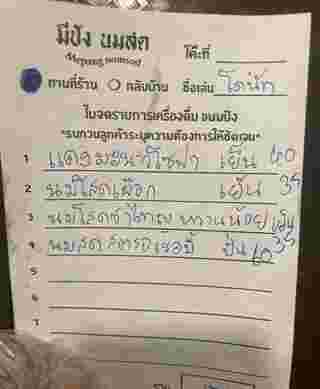 มีปัง นมสด
Mepung nomsod
โต๊ะที่
ทานที่ร้าน กลับบ้าน ชื่อเล่น โดนัท
ใบจดรายการเครื่องดื่ม ขนมปัง
*รบกวนลูกค้าระบุความต้องการให้ชัดเจน*
1 แดงมะนาวโซดา เย็น 40
2 นมสดเผือก เย็น 35
3 นมสด หวานน้อย เย็น 35
4 นมสดสตรอเบอรี่ ปั่น 60
5
6
7